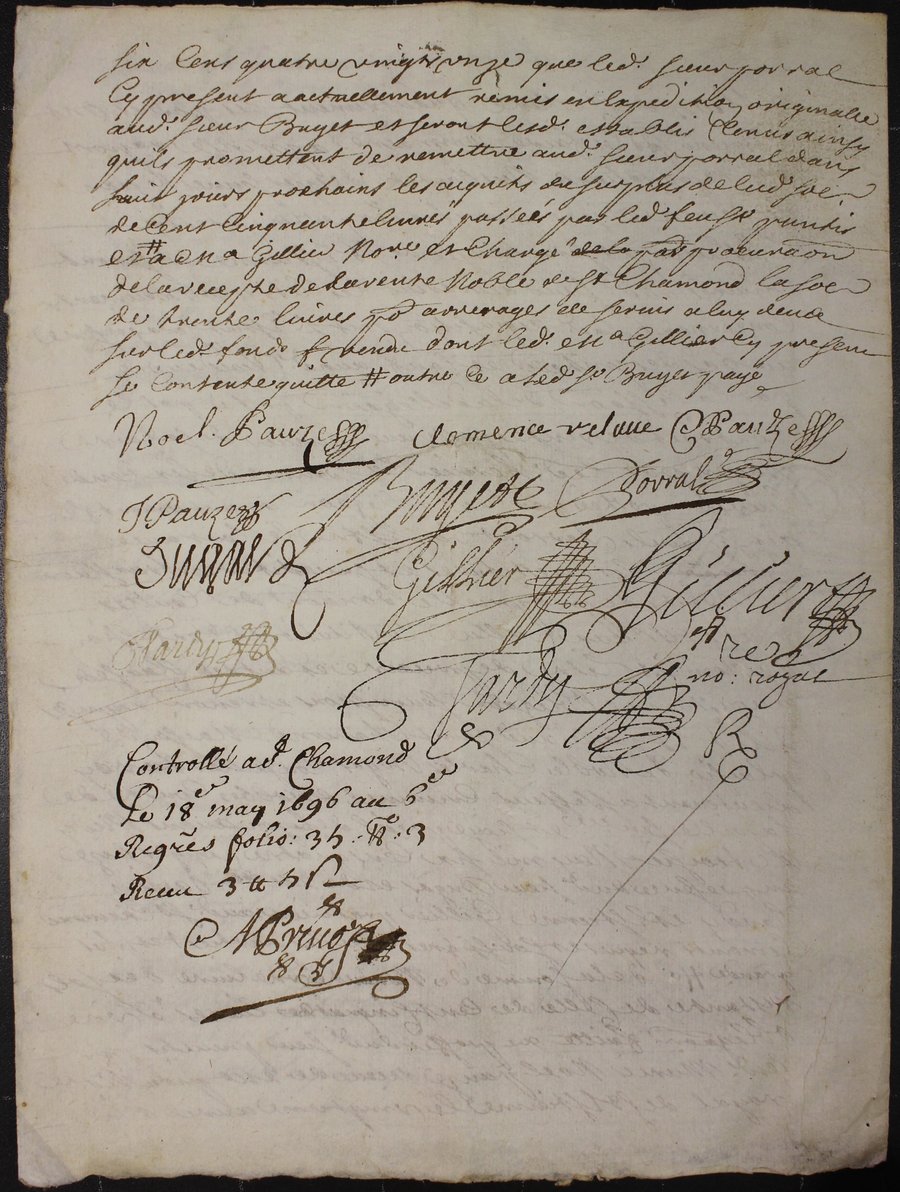 six cens quatre vingts unze que led. sieur Jorral
Cy present aactuellement remis en Expedition originalle
aud. sieur Buyet et seront lesd. establis tenus ainsy
quils promettent de remettre aud. sieur Jorral dans
huit jours prochains les acquits du surplus de lad. soe
de Cent Cinquante livres passées par led. feu sr.
et Gillier Nore. et Chargé de la par procuraon
de la recepte de la rente Noble de St Chamond la soe
de trente livres po arrerages de servis a luy deus
sur led. fonds vendu dont led. Gillier Cy present
se Contente quitte # outre ce a led. sr. Buyet payé
Noel. Pauze Clemence velune C Pauze
J Pauze Buyet Jorral
Gillier Gillier
Tardy
no: royal
Tardy R
Controllé a St. Chamond
Le 18e may 1696 au 6e
Regres folio: 35: No: 3
Receu 3 # 5 s